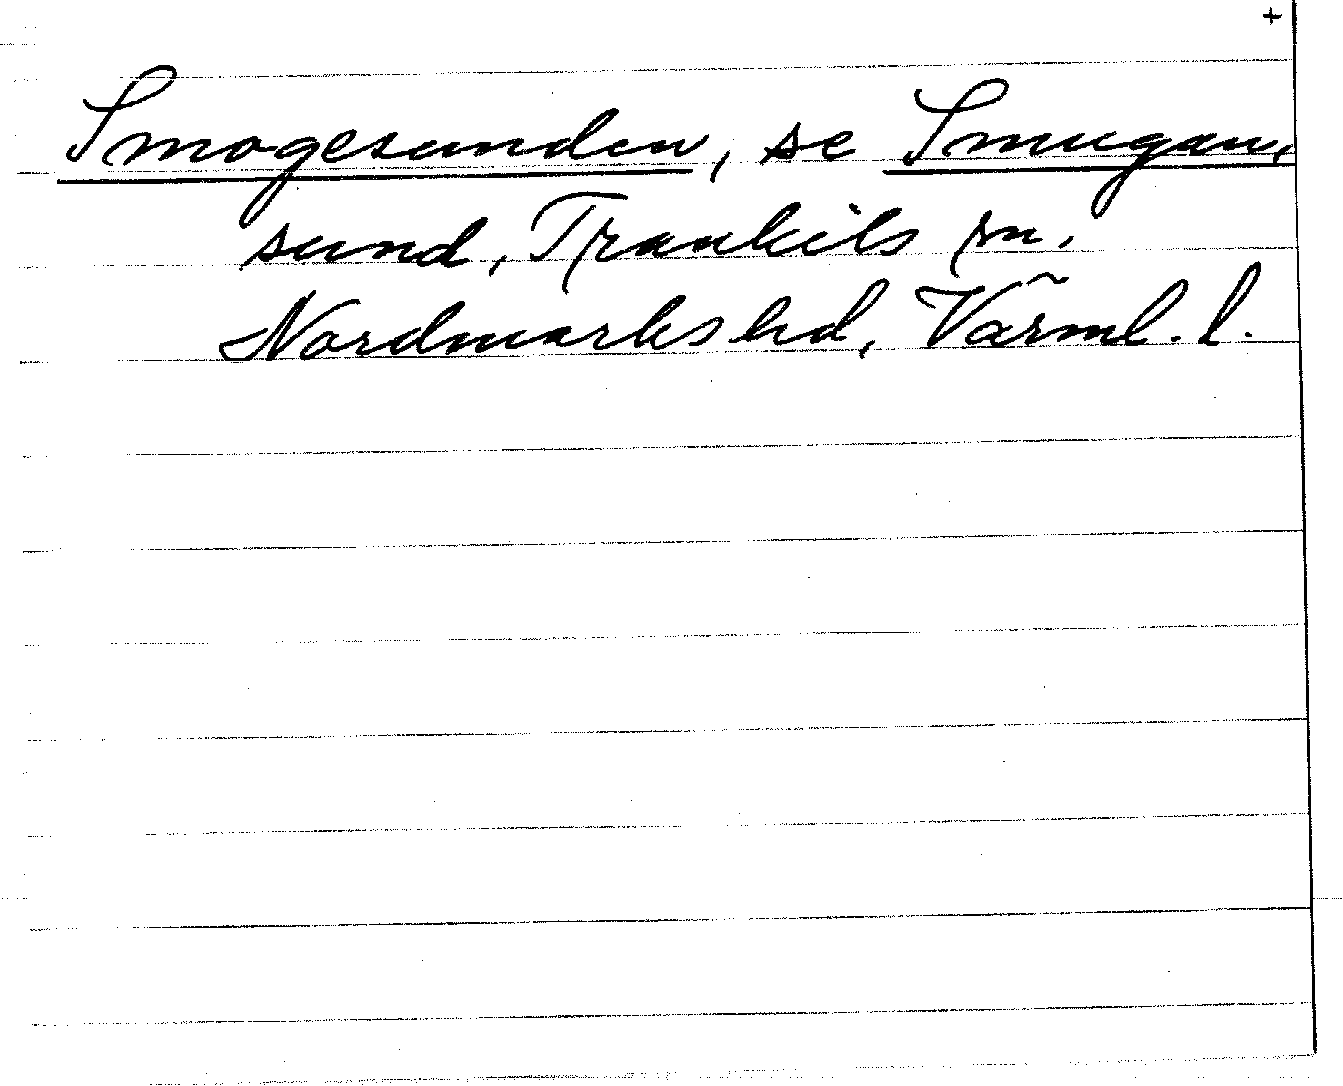 +
Smogesunden, se Smugan,
sund, Trankils sn.
Nordmarks hd, Värml. l.